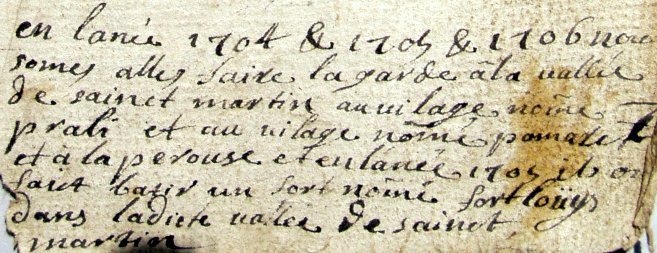 en lanée 1704 & 1705 & 1706 nou
somes alles faire la garde à la vallée
de sainct martin au vilage nōmé
prali et au vilage nōmé pomaret
et à la perouse et en lanée 1705 ils on
faict batir un fort nōmé fort loüys
dans ladicte vallée de sainct
martin